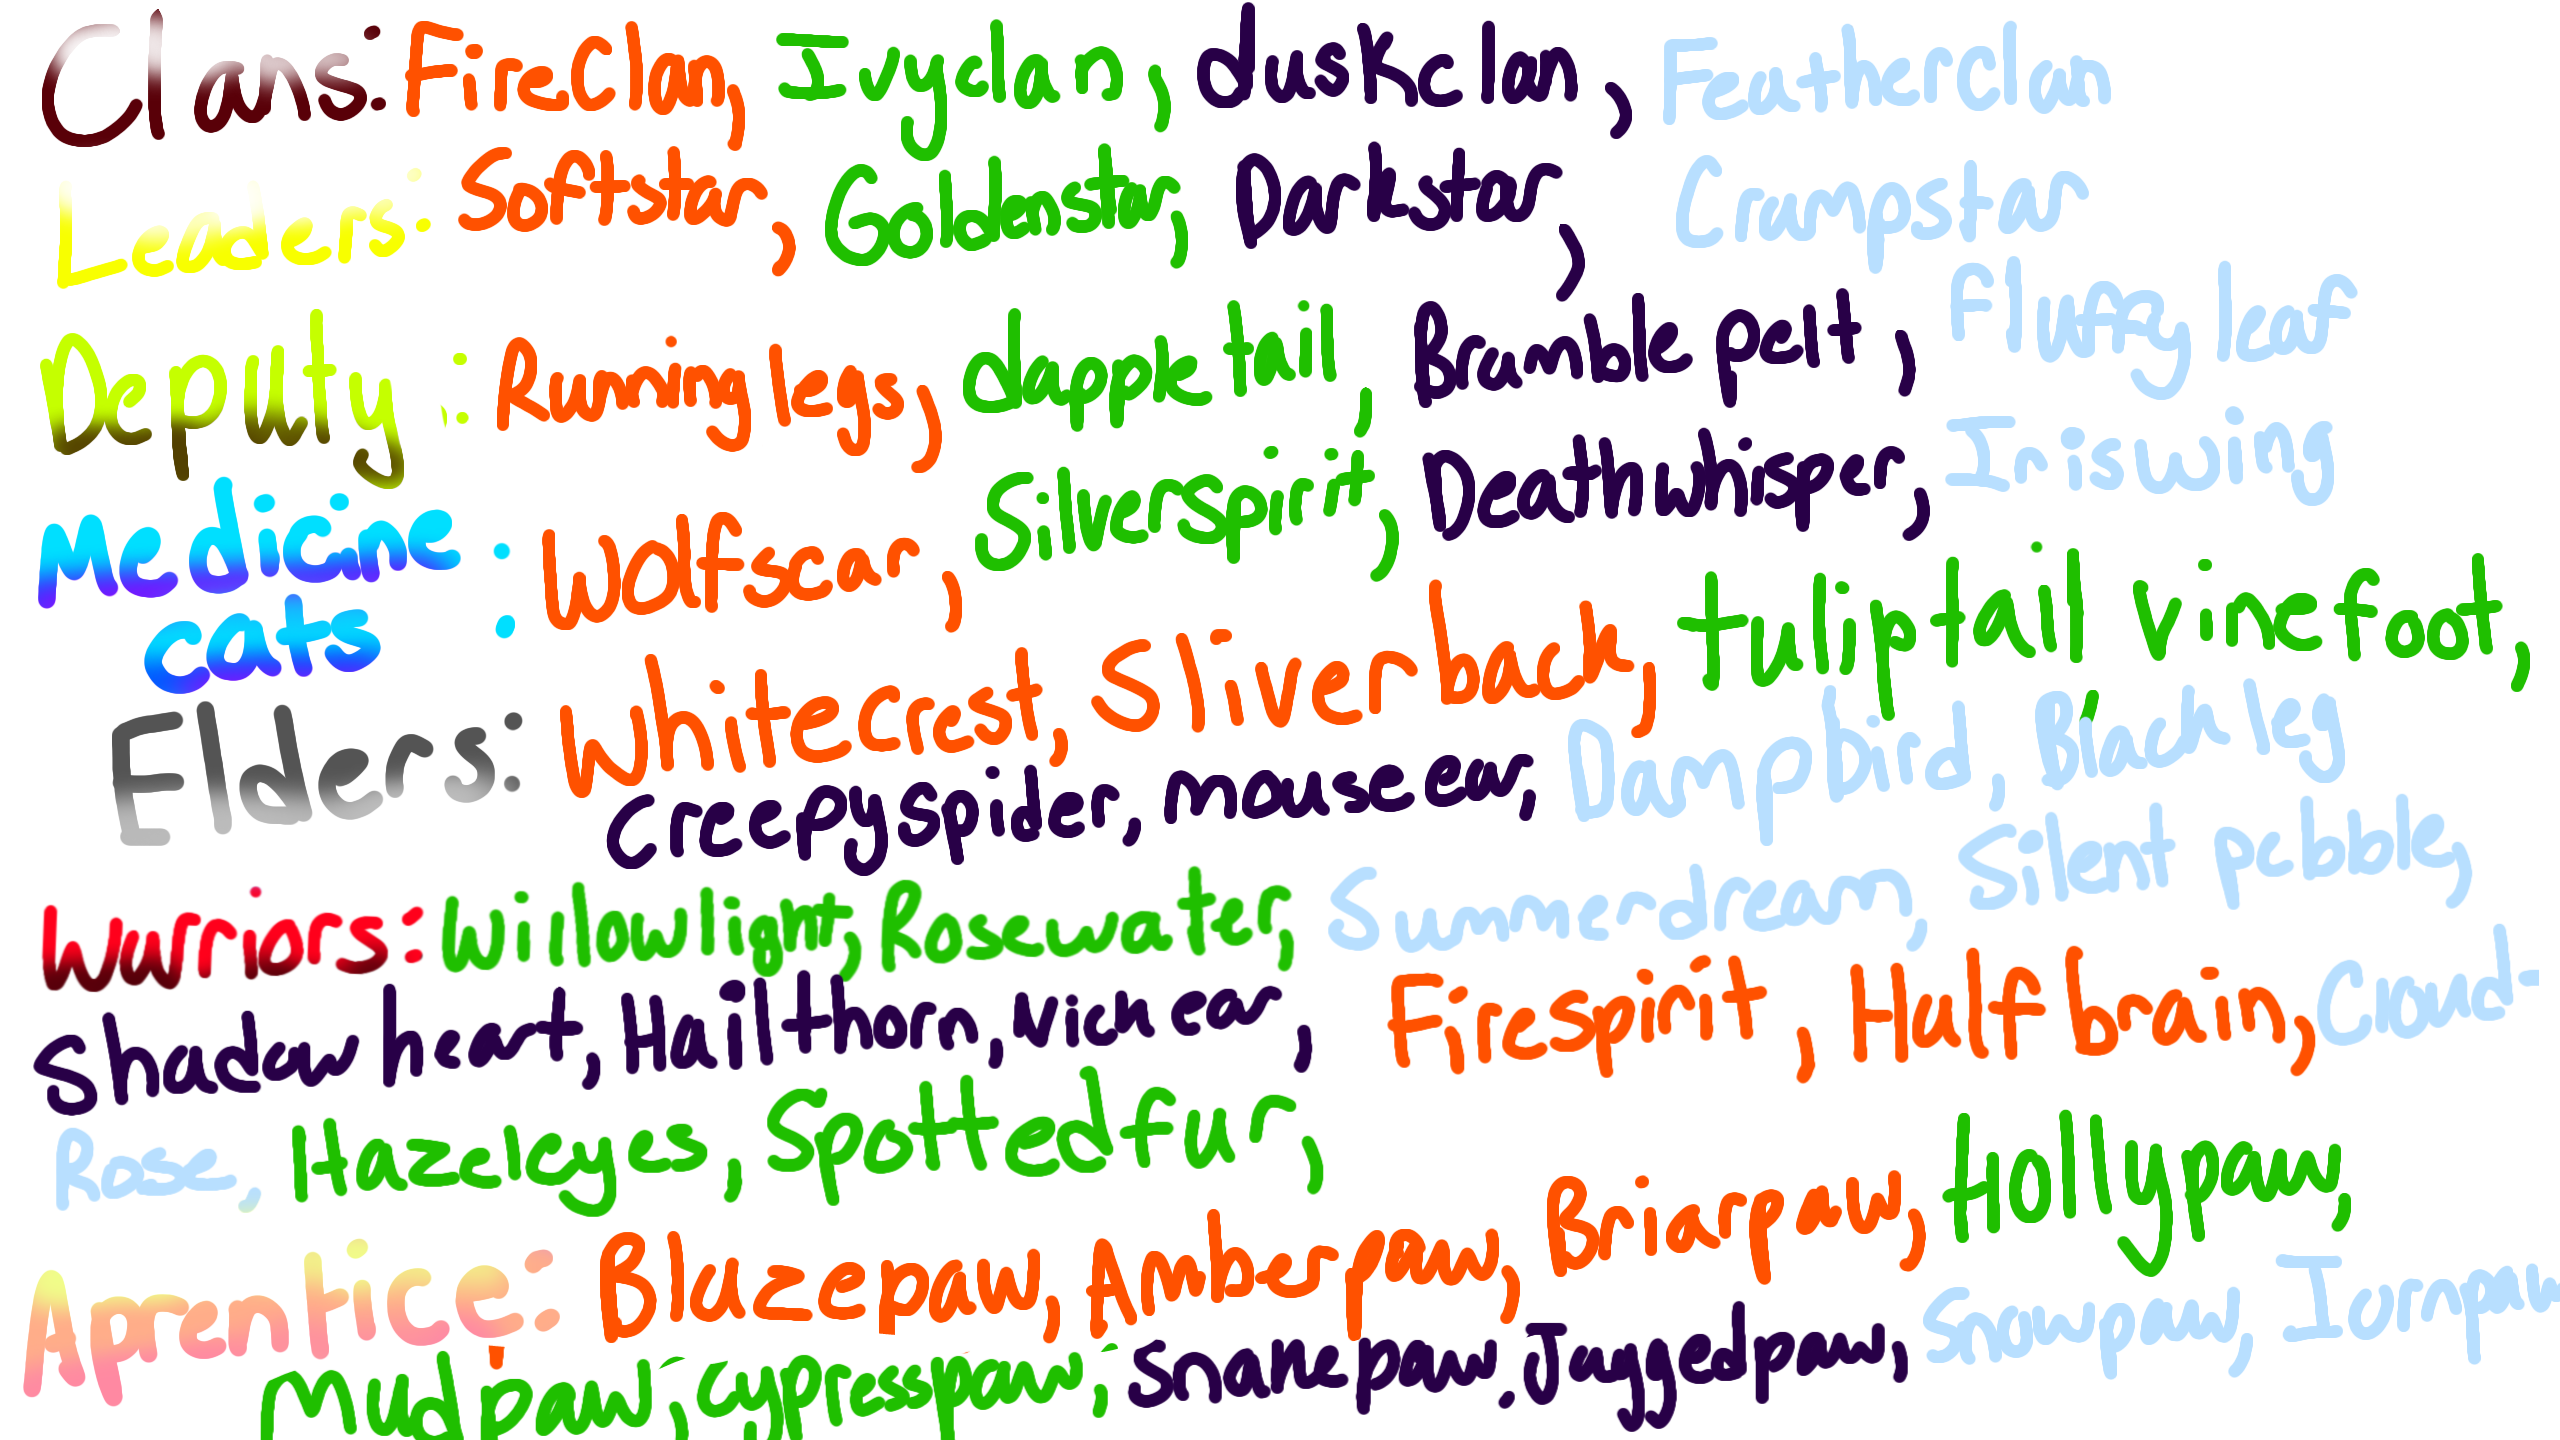 Clans: FireClan, Ivyclan, duskclan, Featherclan
Leaders: Softstar, Goldenstar, Darkstar, Crampstar
Deputy: Running legs, dapple tail, Bramble pelt, Fluffy leaf
Medicine cats: Wolfscar, Silverspirit, Deathwhisper, Iriswing
Elders: Whitecrest, Sliverback, tuliptail, vinefoot,
Creepyspider, mouse ear, Dampbird, Black leg
Warriors: Willowlight, Rosewater, Summerdream, Silent pebble,
Shadow heart, Hailthorn, Nick ear, Firespirit, Half brain, Cloud-
Rose, Hazeleyes, Spottedfur,
Aprentice: Blazepaw, Amberpaw, Briarpaw, Hollypaw,
Mudpaw, cypresspaw, Snakepaw, Jaggedpaw, Snowpaw, Iornpaw